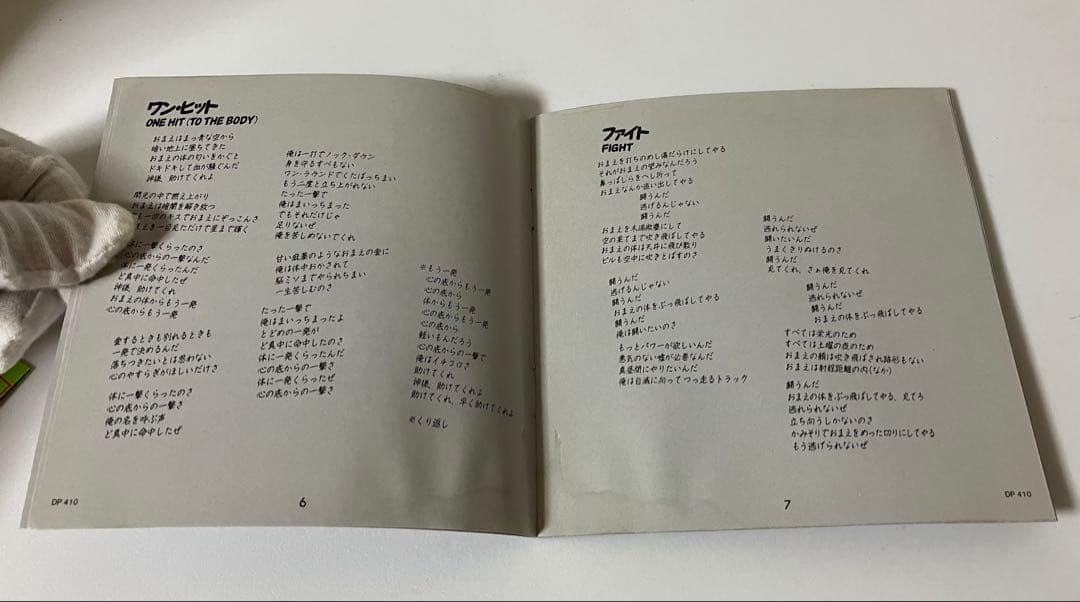 ワン・ヒット
ONE HIT (TO THE BODY)
おまえはまっ青な空から
暗い地上に墜ちてきた
おまえの体の匂いをかぐと
ドキドキして血が騒ぐんだ
神様、助けてくれよ
閃光の中で燃え上がり
おまえは暗闇を解き放つ
でも一回のキスでおまえにぞっこんさ
まえを一目見ただけで星まで輝く
に一撃くらったのさ
心の底からの一撃なんだ
体に一発くらったんだ
ど真中に命中したぜ
神様、助けてくれ
おまえの体からもう一発
心の底からもう一発
愛するときも別れるときも
一発で決めるんだ
落ちつきたいとは思わない
心のやすらぎがほしいだけさ
体に一撃くらったのさ
心の底からの一撃さ
俺の名を呼ぶ声
ど真中に命中したぜ
俺は一打でノック・ダウン
身を守るすべもない
ワン・ラウンドでくたばっちまい
もう二度と立ち上がれない
たった一撃で
俺はまいっちまった
でもそれだけじゃ
足りないぜ
俺を苦しめないでくれ
甘い麻薬のようなおまえの愛に
俺は体中おかされて
脳ミソまでやられちまい
一生苦しむのさ
たった一撃で
俺はまいっちまったよ
とどめの一発が
ど真中に命中したのさ
体に一発くらったんだ
心の底からの一撃さ
体に一発くらったぜ
心の底からの一撃さ
※もう一発
心の底からもう一発
心の底から
体からもう一発
心の底からもう一発
心の底から
軽いもんだろう
心の底からの一撃で
俺はイチコロさ
助けてくれ
神様、助けてくれよ
助けてくれ、早く助けてくれよ
※くり返し
DP 410
6
ファイト
FIGHT
おまえを打ちのめし傷だらけにしてやる
それがおまえの望みなんだろう
鼻っぱしらをへし折って
おまえなんか追い出してやる
闘うんだ
逃げるんじゃない
闘うんだ
おまえを木端微塵にして
空の果てまで吹き飛ばしてやる
おまえの体は天井に飛び散り
ビルも空中に吹きとばすのさ
闘うんだ
逃げるんじゃない
闘うんだ
おまえの体をぶっ飛ばしてやる
闘うんだ
俺は闘いたいのさ
もっとパワーが欲しいんだ
悪気のない嘘が必要なんだ
真昼間にやりたいんだ
俺は自滅に向ってつっ走るトラック
闘うんだ
逃れられないぜ
闘いたいんだ
うまくきりぬけるのさ
闘うんだ
見てくれ、さぁ俺を見てくれ
闘うんだ
逃れられないぜ
闘うんだ
おまえの体をぶっ飛ばしてやる
すべては栄光のため
すべては土曜の夜のため
おまえの顔は吹き飛ばされ跡形もない
おまえは射程距離の内(なか)
闘うんだ
おまえの体をぶっ飛ばしてやる、見てろ
逃れられないぜ
立ち向うしかないのさ
かみそりでおまえをめった切りにしてやる
もう逃げられないぜ
7
DP 410